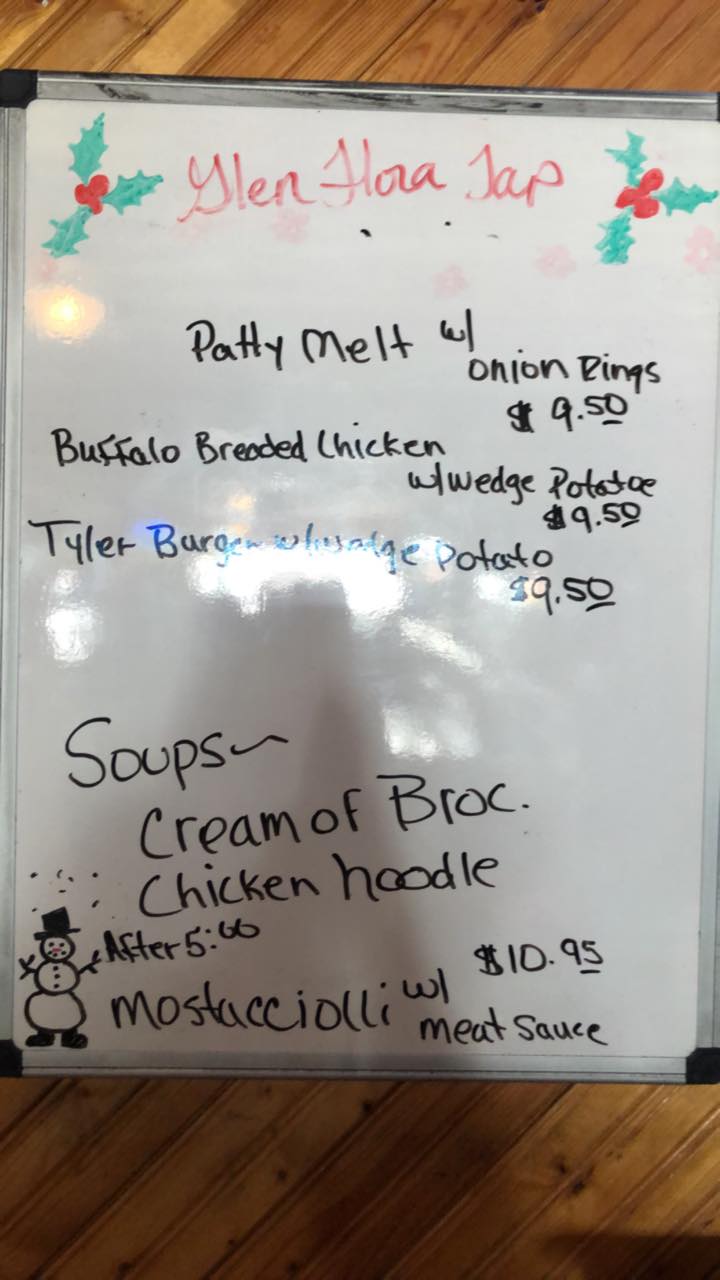 Glen Flora Tap
Patty Melt w/
Onion Rings
$ 9.50
Buffalo Breaded Chicken
w/wedge Potatoe
$9.50
Tyler Burger w/wedge Potato
$9.50
Soups~
Cream of Broc.
Chicken noodle
After 5:00
$10.95
Mostacciolli w/
meat Sauce